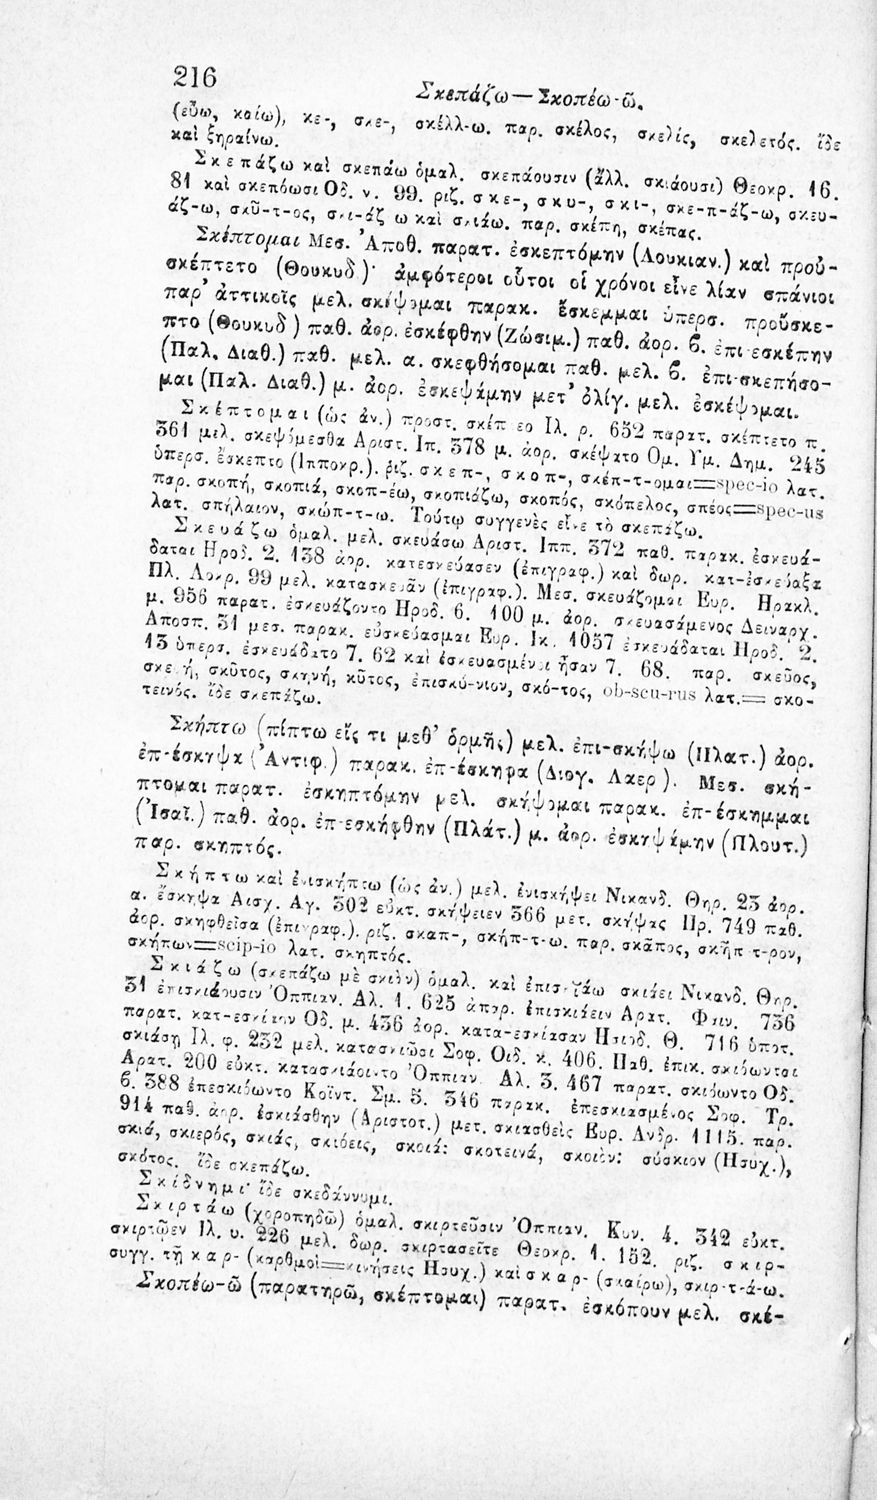 216
Σκεπάζω—Σκοπέω-ῶ.
(εὕω, καίω), κε-, σκε-, σκέλλ-ω. παρ. σκέλος, σκελίς, σκελετός. ἴδε
καὶ ξηραίνω.
Σκεπάζω καὶ σκεπάω ὁμαλ. σκεπάουσιν (ἄλλ. σκιάουσι) Θεοκρ. 16.
81 καὶ σκεπόωσι Οδ. ν. 99. ριζ. σκε-, σκυ-, σκι-, σκε-π-άζ-ω, σκευ-
άζ-ω, σκῦ-τ-ος, σκι-άζ ω καὶ σκιάω. παρ. σκέπη, σκέπας.
Σκέπτομαι Μεσ. Ἀποθ. παρατ. ἐσκεπτόμην (Λουκιαν.) καὶ προὐ-
σκέπτετο (Θουκυδ.)· ἀμφότεροι οὗτοι οἱ χρόνοι εἶνε λίαν σπάνιοι
παρ' ἀττικοῖς μελ. σκέψομαι παρακ. ἔσκεμμαι ὑπερσ. προὔσκε-
πτο (Θουκυδ) παθ. ἀορ. ἐσκέφθην (Ζώσιμ.) παθ. ἀορ. β. ἐπι εσκέπην
(Παλ. Διαθ.) παθ. μελ. α. σκεφθήσομαι παθ. μελ. β. ἐπι-σκεπήσο-
μαι (Παλ. Διαθ.) μ. ἀορ. ἐσκεψάμην μετ' ὀλίγ. μελ. ἐσκέψομαι.
Σκέπτομαι (ὡς ἀν.) προστ. σκέπ εο Ιλ. ρ. 652 παρατ. σκέπτετο π.
361 μελ. σκεψόμεσθα Αριστ. Ιπ. 378 μ. ἀορ. σκέψατο Ομ. Υμ. Δημ. 245
ὑπερσ. ἔσκεπτο (Ιπποκρ.). ῥιζ. σκεπ-, σκοπ-, σκέπ-τ-ομαι=spec-io λατ.
παρ. σκοπή, σκοπιά, σκοπ-έω, σκοπιάζω, σκοπός, σκόπελος, σπέος=spec-us
λατ. σπήλαιον, σκώπ-τ-ω. Τούτῳ συγγενὲς εἶνε τὸ σκεπάζω.
Σκευάζω ὁμαλ. μελ. σκευάσω Αριστ. Ιππ. 372 παθ. παρακ. ἐσκευά-
δαται Ηροδ. 2. 138 ἀορ. κατεσκεύασεν (ἐπιγραφ.) καὶ δωρ. κατ-ἐσκεύαξα
Πλ. Λοκρ. 99 μελ. κατασκευᾶν (ἐπιγραφ.). Μεσ. σκευάζομαι Ευρ. Ηρακλ.
μ. 956 παρατ. ἐσκευάζοντο Ηροδ. 6. 100 μ. ἀορ. σκευασάμενος Δειναρχ.
Αποσπ. 31 μεσ. παρακ. εὐσκεύασμαι Ευρ. Ικ. 1057 ἐσκευάδαται Ηροδ. 2.
13 ὑπερσ. ἐσκευάδατο 7. 62 καὶ ἐσκευασμένοι ἦσαν 7. 68. παρ. σκεῦος,
σκε ή, σκῦτος, σκηνή, κῦτος, ἐπισκύ-νιον, σκό-τος, ob-scu-rus λατ.= σκο-
τεινός. ἴδε σκεπάζω.
Σκήπτω (πίπτω εἴς τι μεθ' ὁρμῆς) μελ. ἐπι-σκήψω (Πλατ.) ἀορ.
ἐπ-έσκηψα (Ἀντιφ.) παρακ. ἐπ-έσκηφα (Διογ. Λαερ). Μεσ. σκή-
πτομαι παρατ. ἐσκηπτόμην μελ. σκήψομαι παρακ. ἐπ-έσκημμαι
(Ἰσαῖ.) παθ. ἀορ. ἐπ εσκήφθην (Πλάτ.) μ. ἀορ. ἐσκηψάμην (Πλουτ.)
παρ. σκηπτός.
Σκήπτω καὶ ἐνισκήπτω (ὡς ἀν.) μελ. ἐνισκήψει Νικανδ. Θηρ. 23 ἀορ.
α. ἔσκηψα Αισχ. Αγ. 302 εὐκτ. σκήψειεν 366 μετ. σκήψας Πρ. 749 παθ.
ἀορ. σκηφθεῖσα (ἐπιγραφ.). ριζ. σκαπ-, σκήπ-τ-ω. παρ. σκᾶπος, σκῆπ τ-ρον,
σκήπων=scip-io λατ. σκηπτός.
Σκιάζω (σκεπάζω μὲ σκιὰν) ὁμαλ. καὶ ἐπισκιάω σκιάει Νικανδ. Θηρ.
31 ἐπισκιάουσιν Ὀππιαν. Αλ. 1. 625 ἀπαρ. ἐπισκιάειν Αρατ. Φαιν. 736
παρατ. κατ-εσκίαον Οδ. μ. 436 ἀορ. κατα-εσκίασαν Ησιοδ. Θ. 716 ὑποτ.
σκιάσῃ Ιλ. φ. 232 μελ. κατασκιῶσι Σοφ. Οιδ. κ. 406. Παθ. ἐπικ. σκιόωνται
Αρατ. 200 εὐκτ. κατασκιάοιντο Ὀππιαν Αλ. 3. 467 παρατ. σκιόωντο Οδ.
β. 388 ἐπεσκιόωντο Κοϊντ. Σμ. 5. 346 παρακ. ἐπεσκιασμένος Σοφ. Τρ.
914 παθ. ἀορ. ἐσκιάσθην (Αριστοτ.) μετ. σκιασθεὶς Ευρ. Ανδρ. 1115. παρ.
σκιά, σκιερός, σκιάς, σκιόεις, σκοιά: σκοτεινά, σκοιὸν: σύσκιον (Ησυχ.),
σκότος. ἴδε σκεπάζω.
Σκίδνημι· ἴδε σκεδάννυμι.
Σκιρτάω (χοροπηδῶ) ὁμαλ. σκιρτεῦσιν Ὀππιαν. Κυν. 4. 342 εὐκτ.
σκιρτῷεν Ιλ. υ. 226 μελ. δωρ. σκιρτασεῖτε Θεοκρ. 1. 152. ριζ. σκιρ-
συγγ. τῇ καρ- (καρθμοὶ=κινήσεις Ησυχ.) καὶ σκαρ- (σκαίρω), σκιρ-τ-ά-ω.
Σκοπέω-ῶ (παρατηρῶ, σκέπτομαι) παρατ. ἐσκόπουν μελ. σκέ-